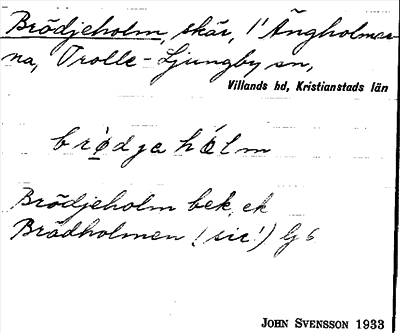 Brödjeholm, skär, i Ängholmar-
na, Trolle-Ljungby sn,
Villands hd, Kristianstads län
brødja hòlm
Brödjeholm bek, ek
Brädholmen (sic!) Gs
JOHN SVENSSON 1933